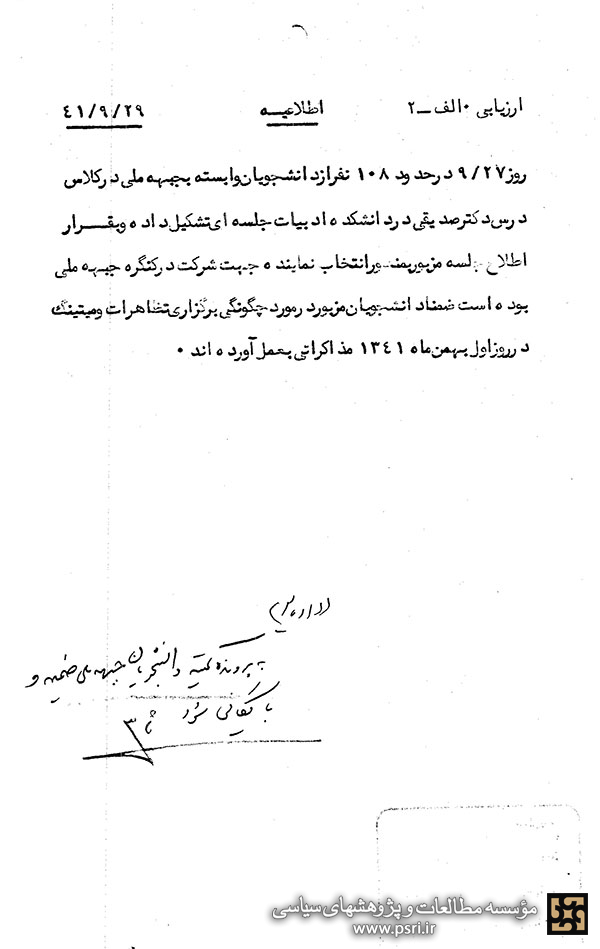 ارزیابی ۰ الف ـ ۲ اطلاعیـه ۴۱/۹/۲۹
روز ۹/۲۷ در حدود ۱۰۸ نفر از دانشجویان وابسته بجبهه ملی در کلاس
درس دکتر صدیقی در دانشکده ادبیات جلسه ای تشکیل داده و بقـرار
اطلاع جلسه مزبور بمنظور انتخاب نماینده جهت شرکت در کنگره جبهه ملی
بوده است ضمناً دانشجویان مزبور در مورد چگونگی برگزاری تظاهرات و میتینگ
در روز اول بهمن ماه ۱۳۴۱ مذاکراتی بعمل آورده اند ۰
به پرونده کمیته دانشجویان جبهه ملی ضمیمه و
بایگانی شود
مؤسسه مطالعات و پژوهشهای سیاسی
www.psri.ir